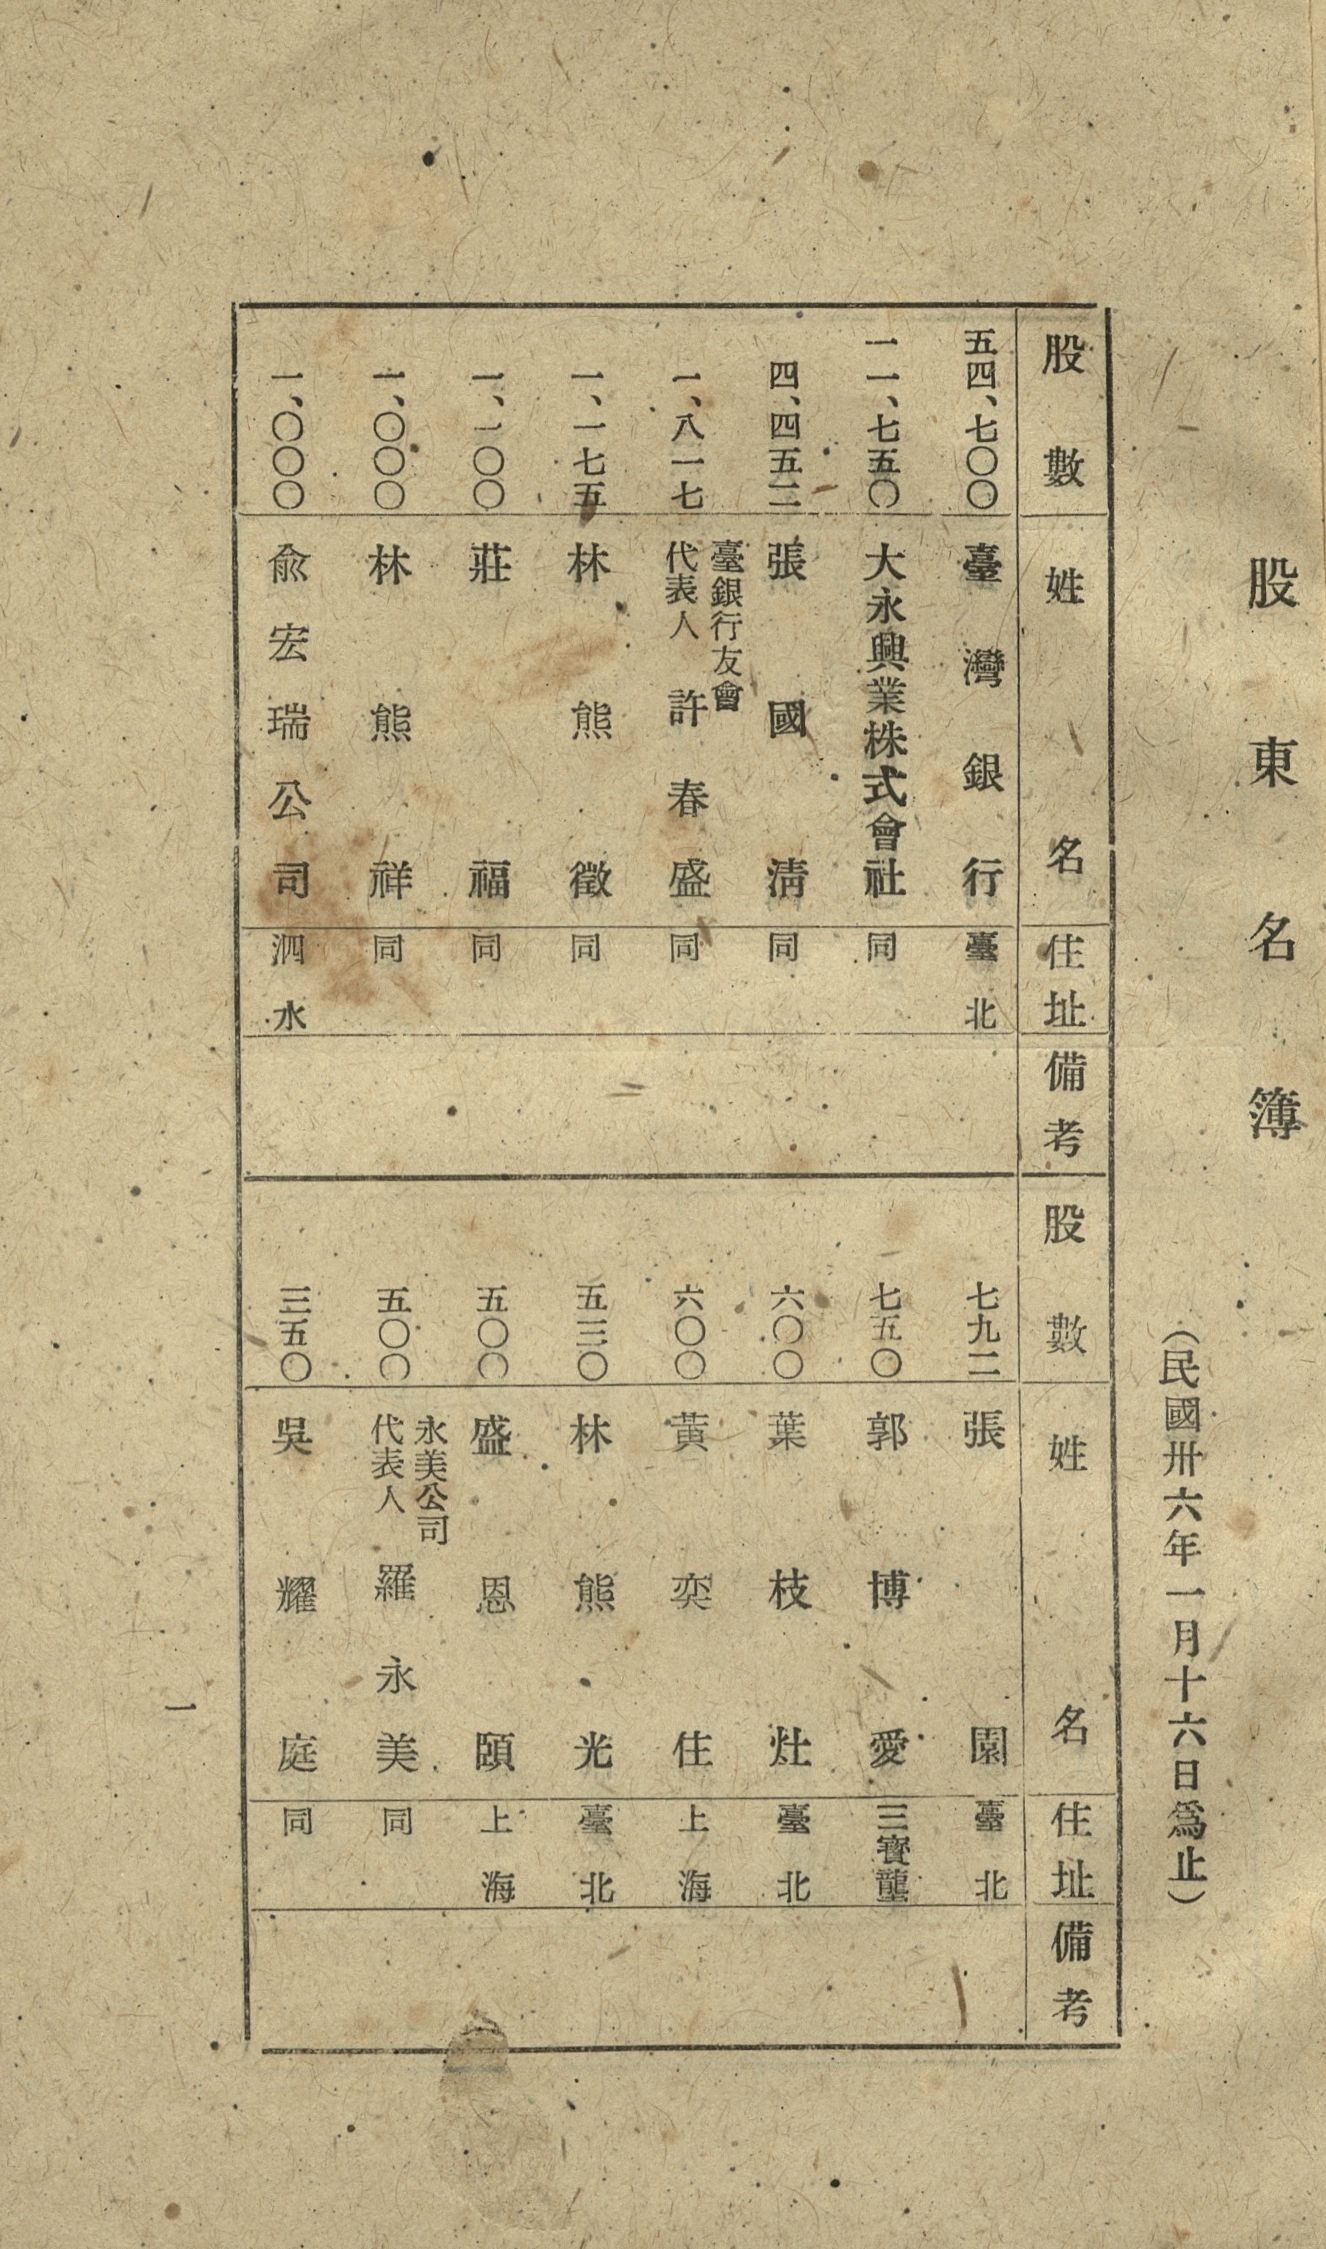 股東名簿
（民國卅六年一月十六日爲止）
股數 姓名 住址 備考
五四、七〇〇 臺灣銀行 臺北
一一、七五〇 大永興業株式會社 同
四、四五二 張國清 同
一、八一七 臺銀行友會代表人 許春盛 同
一、一七五 林熊徵 同
一、一〇〇 莊福 同
一、〇〇〇 林熊祥 同
一、〇〇〇 兪宏瑞公司 泗水
股數 姓名 住址 備考
七九二 張園 臺北
七五〇 郭博愛 三寶壟
六〇〇 葉枝灶 臺北
六〇〇 黃奕住 上海
五三〇 林熊光 臺北
五〇〇 盛恩頤 上海
五〇〇 永美公司代表人 羅永美 同
三五〇 吳耀庭 同
一